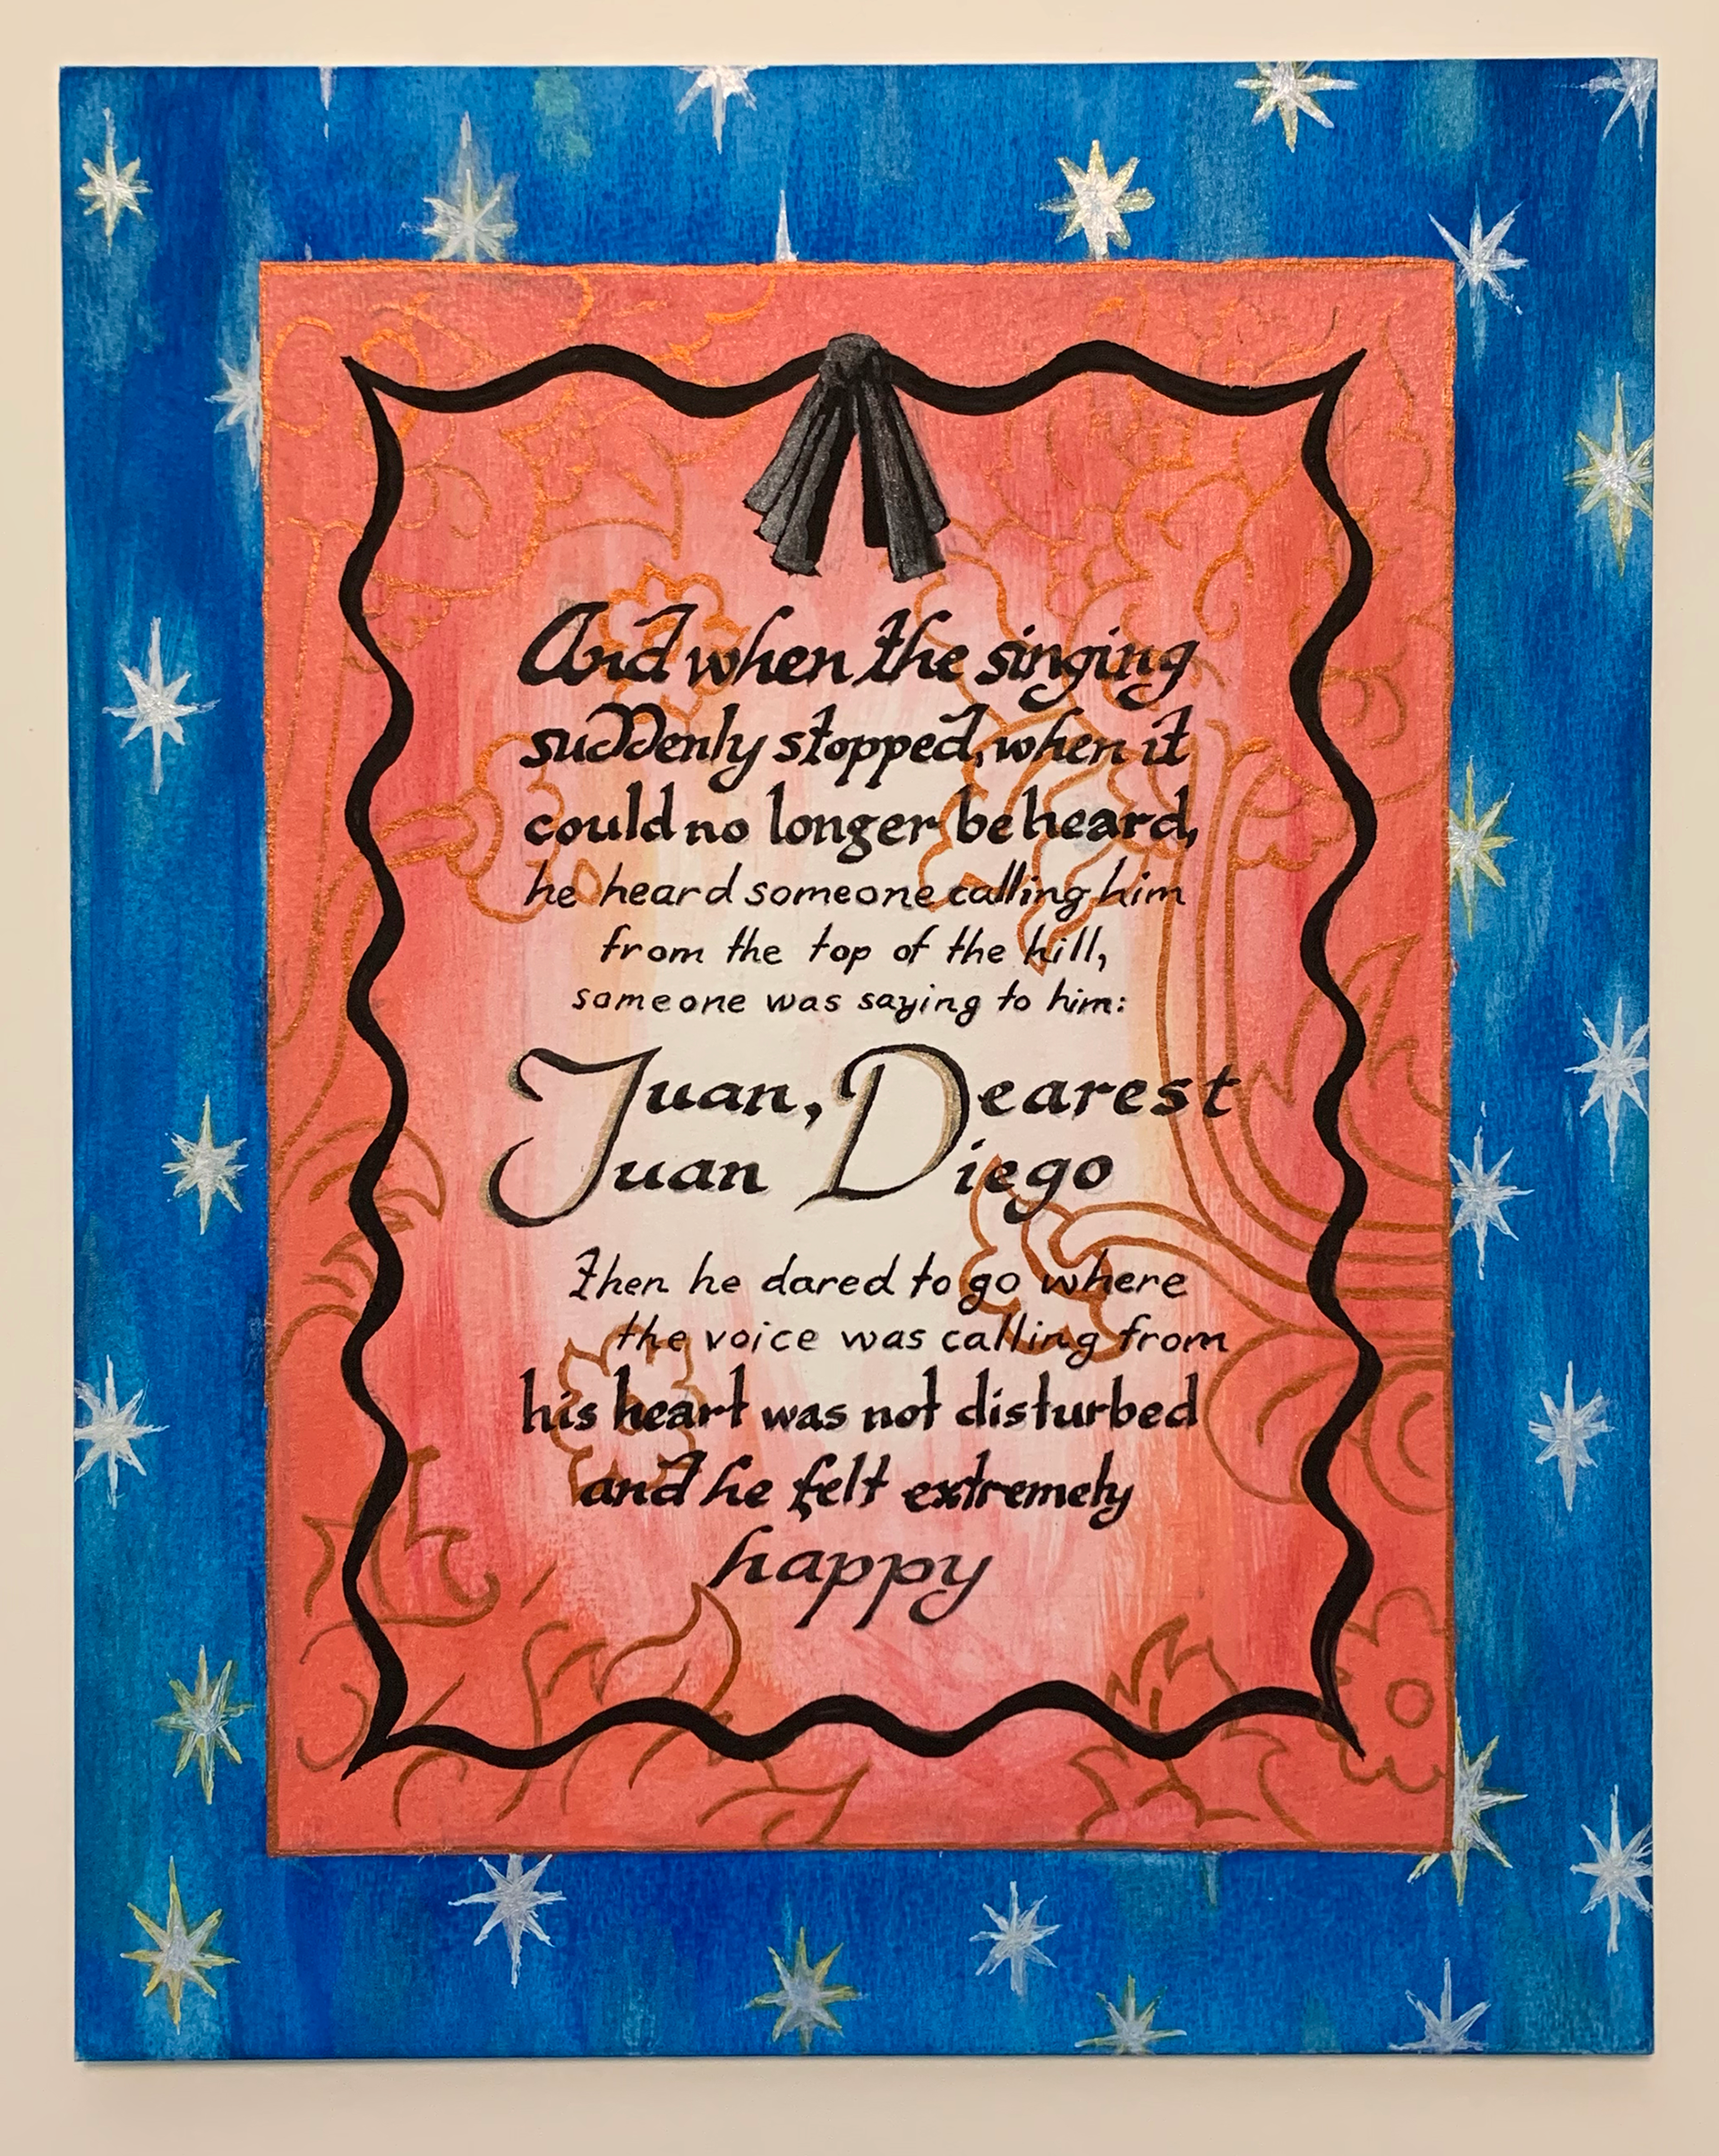 And when the singing
suddenly stopped, when it
could no longer be heard,
he heard someone calling him
from the top of the hill,
someone was saying to him:
Juan, Dearest
Juan Diego
Then he dared to go where
the voice was calling from
his heart was not disturbed
and he felt extremely
happy